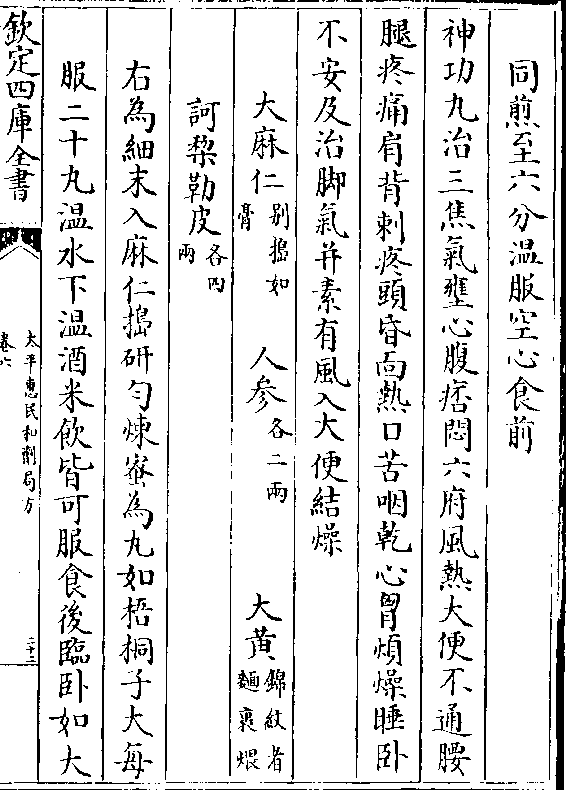 同煎至六分温服空心食前
神功丸治三焦氣壅心腹痞悶六府風熱大便不通腰
腿疼痛肩背刺疼頭昏面熱口苦咽乾心胷煩燥睡卧
不安及治脚氣并素有風入大便結燥
大麻仁别搗如膏 人參各二兩 大黄錦紋者麵裹煨
訶棃勒皮各四兩
右為細末入麻仁搗研匀煉蜜為丸如梧桐子大每
服二十丸温水下温酒米飲皆可服食後臨卧如大
欽定四庫全書
太平惠民和劑局方
卷六
三十三